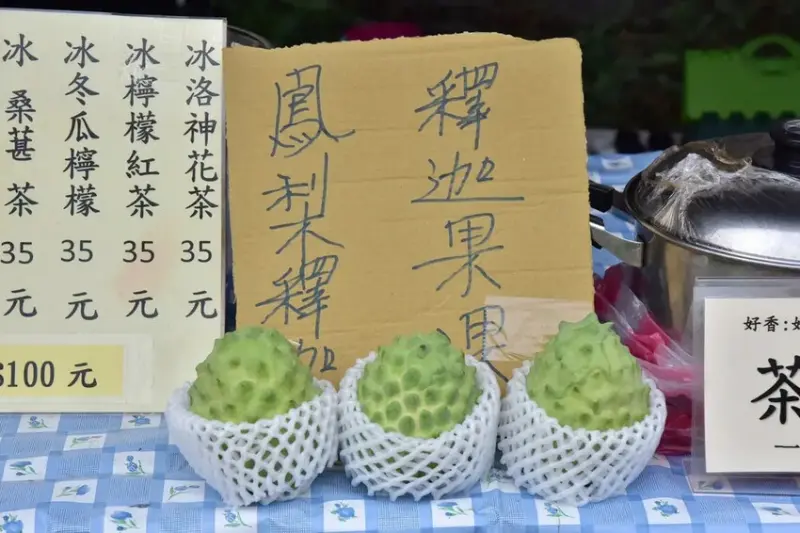 冰洛神花茶 35元
冰檸檬紅茶 35元
冰冬瓜檸檬 35元
冰桑葚茶 35元
$100元
釋迦果
鳳梨釋迦
好香:
茶